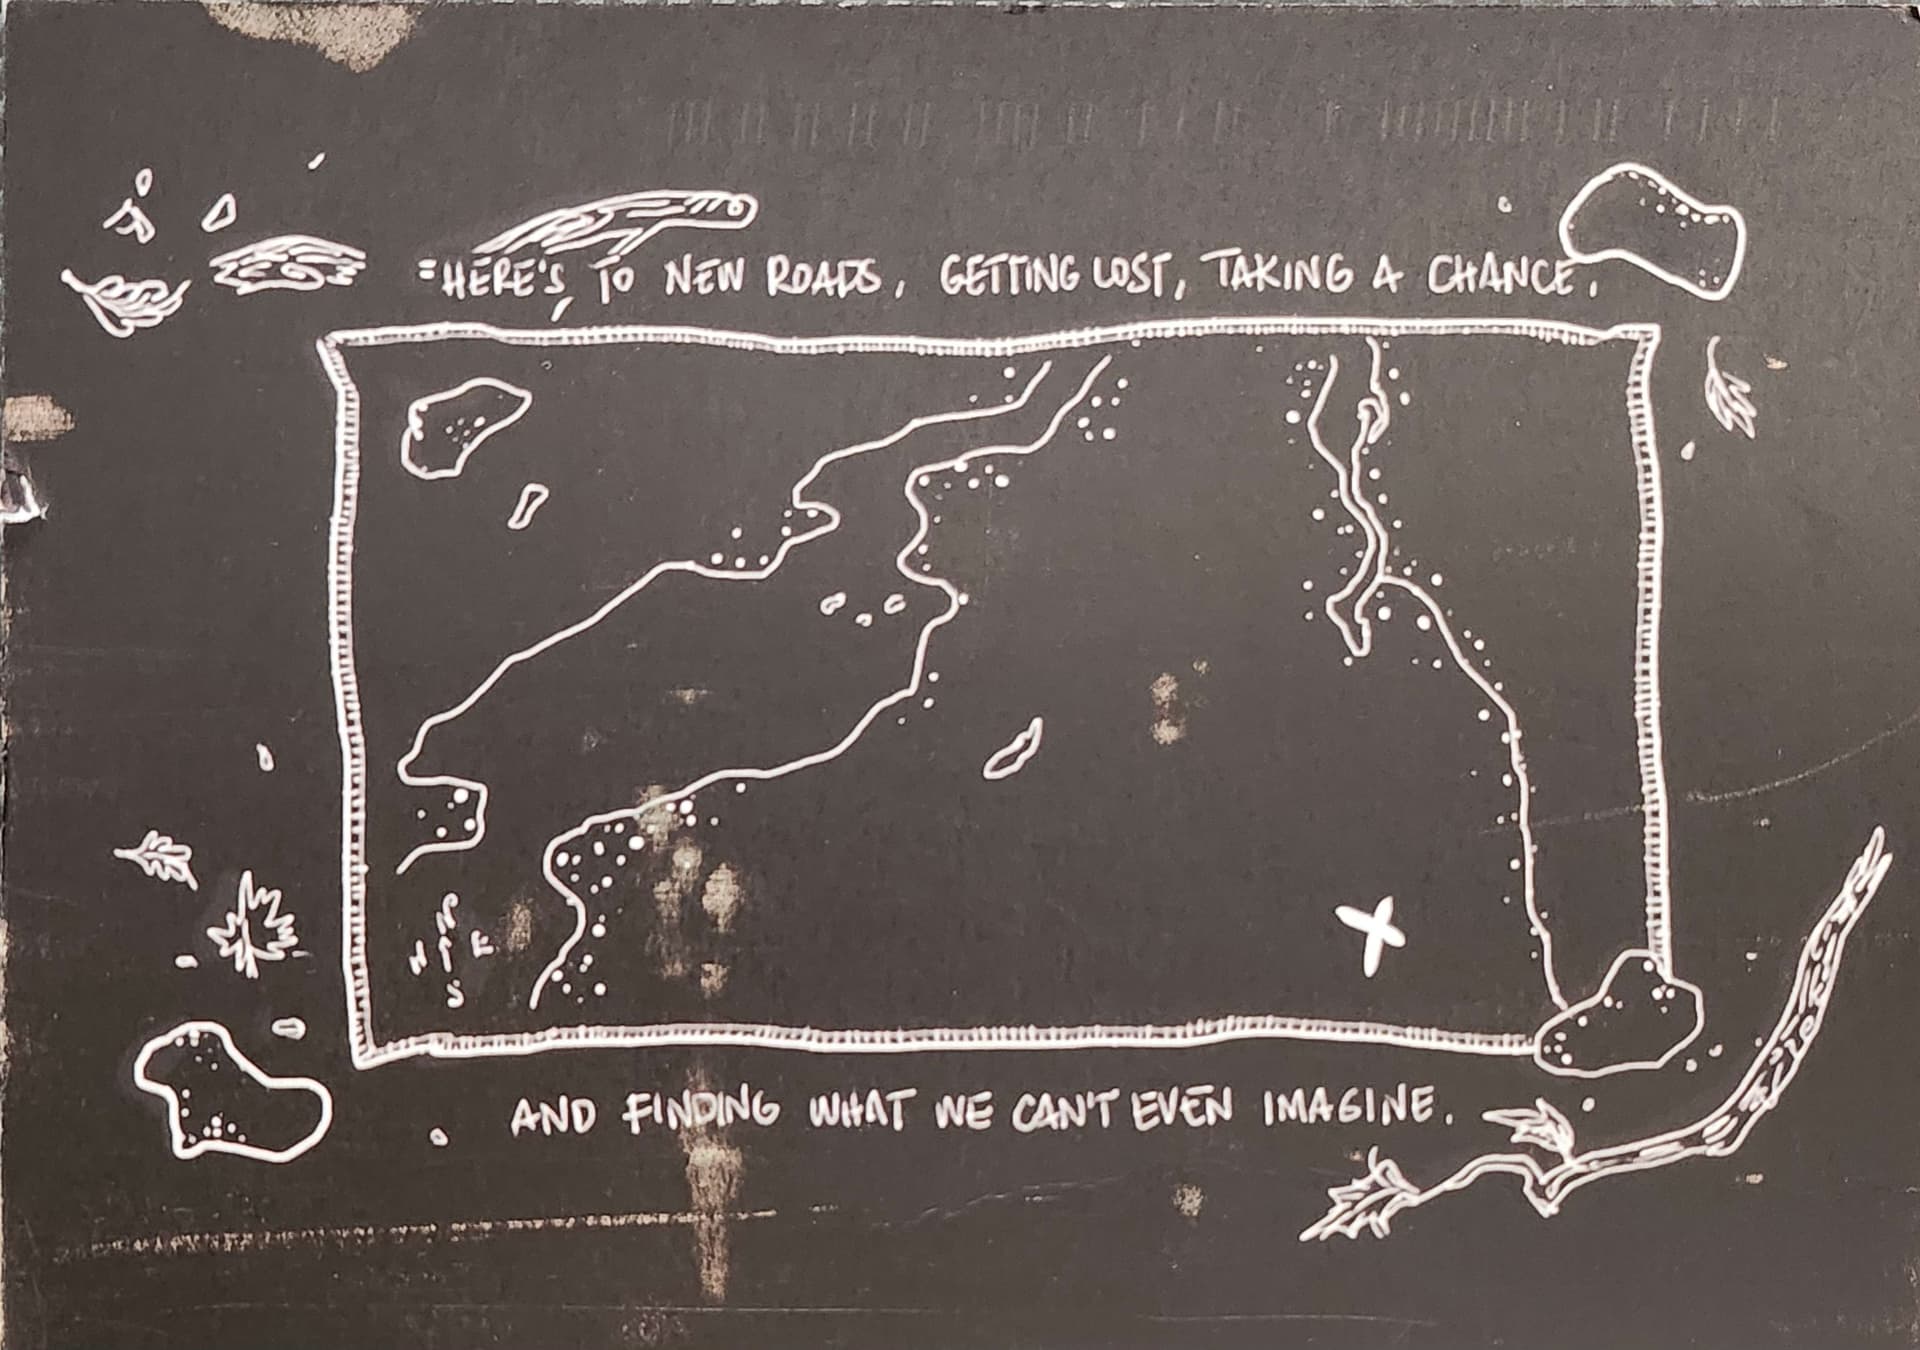 HERE'S TO NEW ROADS, GETTING LOST, TAKING A CHANCE,
N
E
S
AND FINDING WHAT WE CAN'T EVEN IMAGINE.